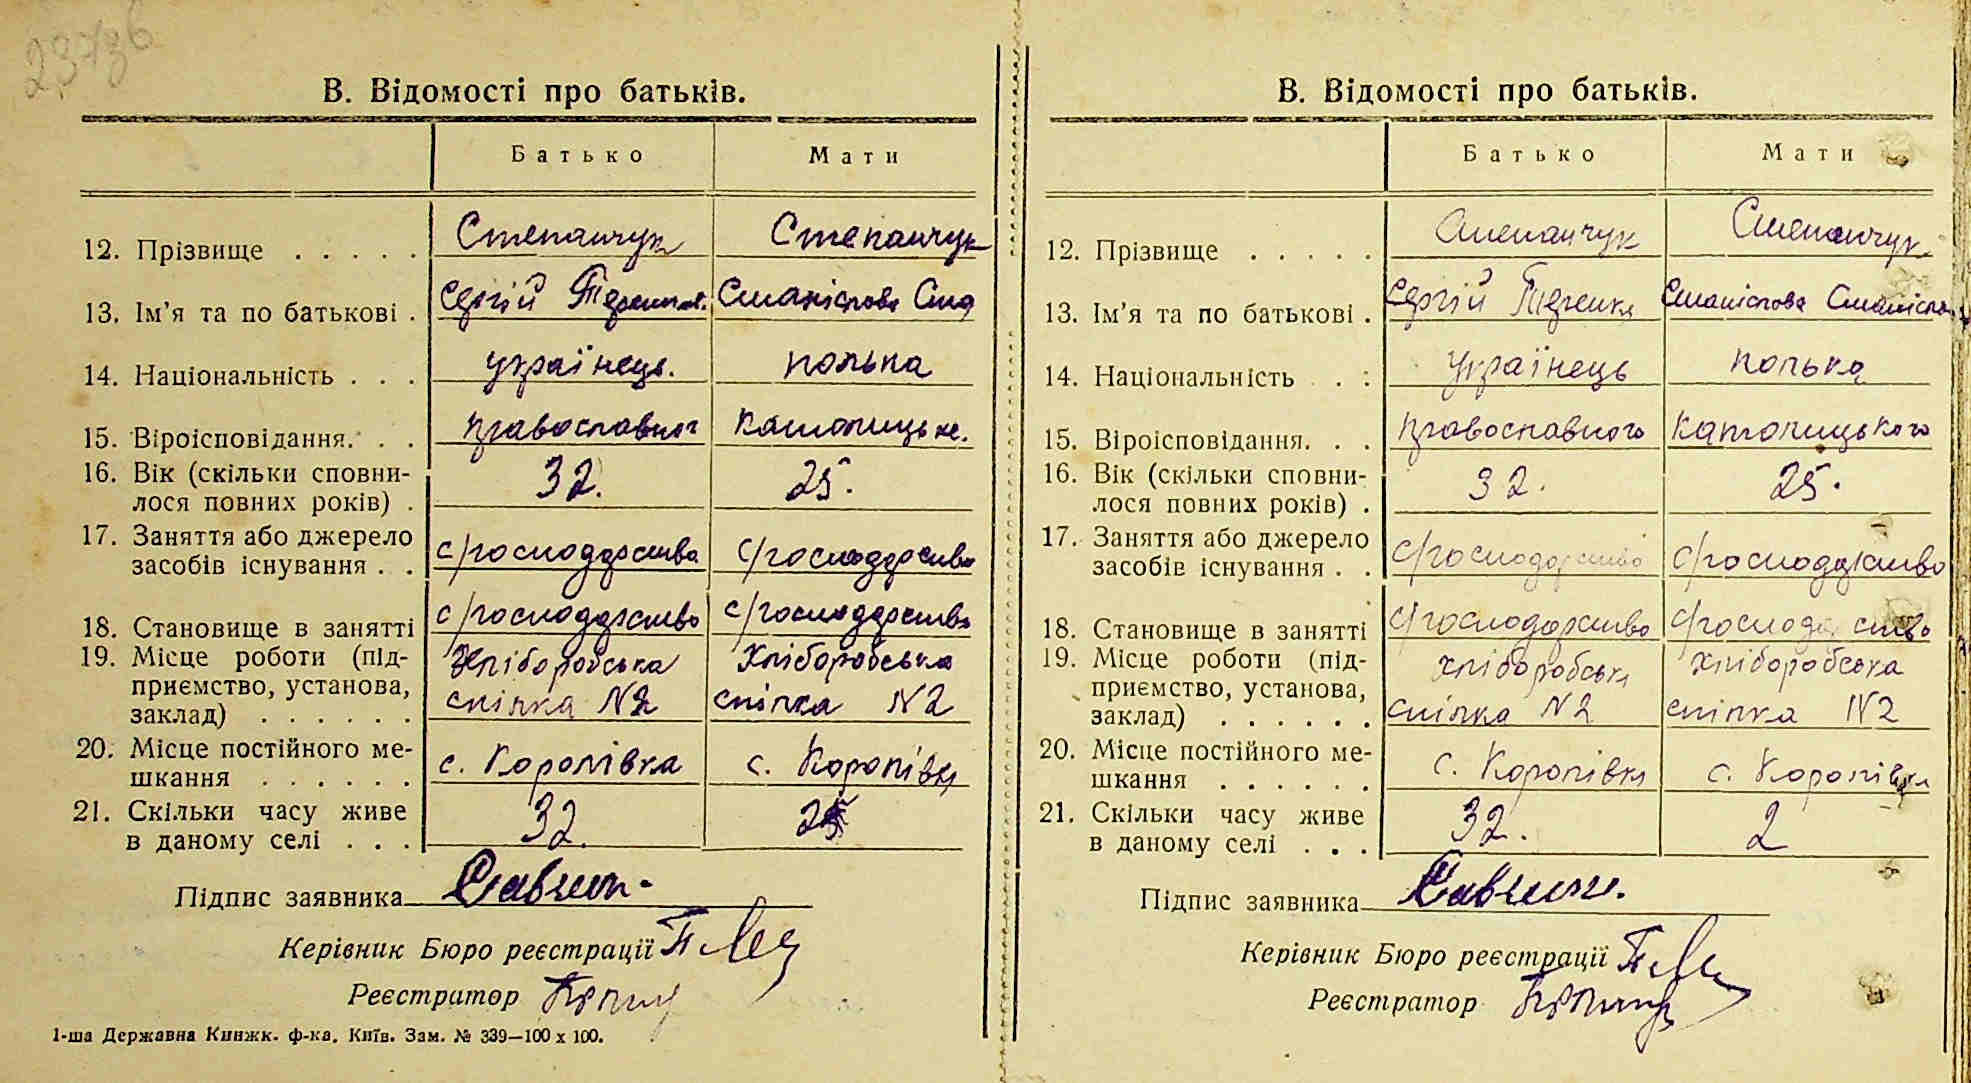 В. Відомості про батьків.
Батько Мати
12. Прізвище . . . . . Степанчук Степанчук
13. Ім'я та по батькові . Сергій Стан
14. Національність . . . українець. полька
15. Віроісповідання. . . православног католицьке.
16. Вік (скільки сповни-
лося повних років) . 32. 25.
17. Заняття або джерело
засобів існування . . с/господарство с/господарство
18. Становище в занятті с/господарство с/господарство
19. Місце роботи (під- Хліборобська Хліборобська
приємство, установа, спілка №2 спілка №2
заклад) . . . . . .
20. Місце постійного ме-
шкання . . . . . . с. Королівка с. Королівка
21. Скільки часу живе
в даному селі . . . 32.
Підпис заявника
Керівник Бюро реєстрації
Реєстратор
1-ша Державна Книжк. ф-ка. Київ. Зам. № 339—100 х 100.
В. Відомості про батьків.
Батько Мати
12. Прізвище . . . . . Степанчук Степанчук
13. Ім'я та по батькові . Сергій
14. Національність . . : українець полька
15. Віроісповідання. . . православного католицького
16. Вік (скільки сповни-
лося повних років) . 32. 25.
17. Заняття або джерело
засобів існування . . с/господарство с/господарство
18. Становище в занятті с/господарство с/господарство
19. Місце роботи (під- хліборобськ хліборобська
приємство, установа, спілка №2 спілка №2
заклад) . . . . . .
20. Місце постійного ме-
шкання . . . . . . с. Королівка с. Королівка
21. Скільки часу живе
в даному селі . . . 32. 2
Підпис заявника
Керівник Бюро реєстрації
Реєстратор